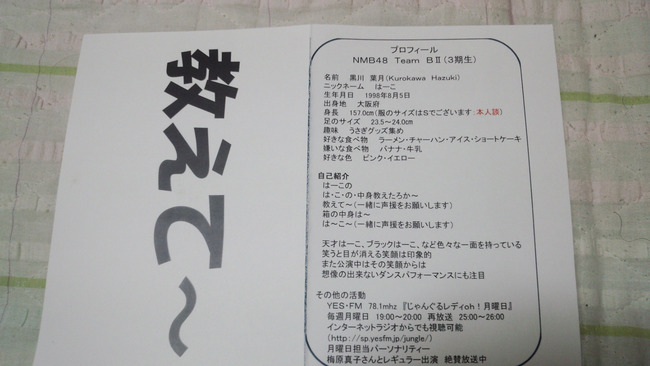 教えて～
プロフィール
NMB48 Team BⅡ(3期生)
名前 黒川 葉月(Kurokawa Hazuki)
ニックネーム はーこ
生年月日 1998年8月5日
出身地 大阪府
身長 157.0cm(服のサイズはSでございます:本人談)
足のサイズ 23.5～24.0cm
趣味 うさぎグッズ集め
好きな食べ物 ラーメン・チャーハン・アイス・ショートケーキ
嫌いな食べ物 バナナ・牛乳
好きな色 ピンク・イエロー
自己紹介
はーこの
は・こ・の・中身教えたろか～
教えて～(一緒に声援をお願いします)
箱の中身は～
は～こ～(一緒に声援をお願いします)
天才はーこ、ブラックはーこ、など色々な一面を持っている
笑うと目が消える笑顔は印象的
また公演中はその笑顔からは
想像の出来ないダンスパフォーマンスにも注目
その他の活動
YES・FM 78.1mhz 『じゃんぐるレディoh！月曜日』
毎週月曜日 19:00～20:00 再放送 25:00～26:00
インターネットラジオからでも視聴可能
(http://sp.yesfm.jp/jungle/)
月曜日担当パーソナリティー
梅原真子さんとレギュラー出演 絶賛放送中